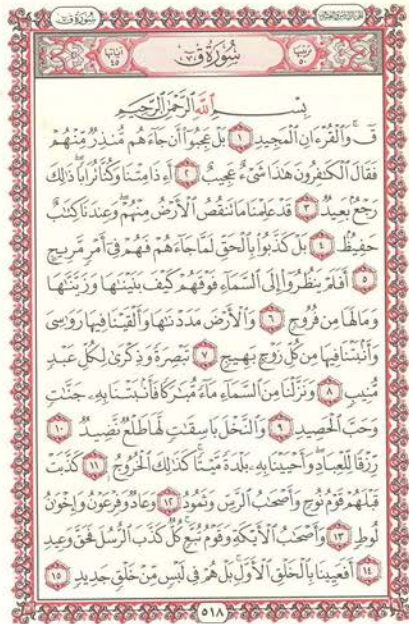 سُورَةُ ق
الجزء السادس والعشرون
ترتيبها ٥٠
سُورَةُ ق
آياتها ٤٥
بِسْمِ اللَّهِ الرَّحْمَٰنِ الرَّحِيمِ
قٓ ۚ وَالْقُرْءَانِ الْمَجِيدِ ١ بَلْ عَجِبُوٓا أَن جَآءَهُم مُّنذِرٌ مِّنْهُمْ
فَقَالَ الْكَٰفِرُونَ هَٰذَا شَىْءٌ عَجِيبٌ ٢ أَءِذَا مِتْنَا وَكُنَّا تُرَابًا ۖ ذَٰلِكَ
رَجْعٌۢ بَعِيدٌ ٣ قَدْ عَلِمْنَا مَا تَنقُصُ الْأَرْضُ مِنْهُمْ ۖ وَعِندَنَا كِتَٰبٌ
حَفِيظٌۢ ٤ بَلْ كَذَّبُوا۟ بِالْحَقِّ لَمَّا جَآءَهُمْ فَهُمْ فِىٓ أَمْرٍ مَّرِيجٍ
٥ أَفَلَمْ يَنظُرُوٓا۟ إِلَى السَّمَآءِ فَوْقَهُمْ كَيْفَ بَنَيْنَٰهَا وَزَيَّنَّٰهَا
وَمَا لَهَا مِن فُرُوجٍ ٦ وَالْأَرْضَ مَدَدْنَٰهَا وَأَلْقَيْنَا فِيهَا رَوَٰسِىَ
وَأَنۢبَتْنَا فِيهَا مِن كُلِّ زَوْجٍۭ بَهِيجٍ ٧ تَبْصِرَةً وَذِكْرَىٰ لِكُلِّ عَبْدٍ
مُّنِيبٍ ٨ وَنَزَّلْنَا مِنَ السَّمَآءِ مَآءً مُّبَٰرَكًا فَأَنۢبَتْنَا بِهِۦ جَنَّٰتٍ
وَحَبَّ الْحَصِيدِ ٩ وَالنَّخْلَ بَاسِقَٰتٍ لَّهَا طَلْعٌ نَّضِيدٌ ١٠
رِّزْقًا لِّلْعِبَادِ ۖ وَأَحْيَيْنَا بِهِۦ بَلْدَةً مَّيْتًا ۚ كَذَٰلِكَ الْخُرُوجُ ١١ كَذَّبَتْ
قَبْلَهُمْ قَوْمُ نُوحٍ وَأَصْحَٰبُ الرَّسِّ وَثَمُودُ ١٢ وَعَادٌ وَفِرْعَوْنُ وَإِخْوَٰنُ
لُوطٍ ١٣ وَأَصْحَٰبُ الْأَيْكَةِ وَقَوْمُ تُبَّعٍ ۚ كُلٌّ كَذَّبَ الرُّسُلَ فَحَقَّ وَعِيدِ
١٤ أَفَعَيِينَا بِالْخَلْقِ الْأَوَّلِ ۚ بَلْ هُمْ فِى لَبْسٍ مِّنْ خَلْقٍ جَدِيدٍ ١٥
٥١٨